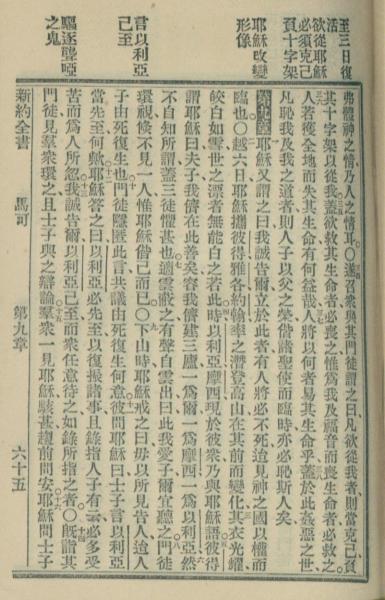 至三日復
活
欲從耶穌
必須克己
負十字架
耶穌改變
形像
言以利亞
已至
驅逐聾啞
之鬼
弗體神之情乃人之情耳〇遂召衆與其門徒謂之曰凡欲從我者則當克己負
其十字架以從我蓋欲救其生命者必喪之惟爲我及福音而喪生命者必救之
人若獲全地而失其生命有何益哉人將以何者易其生命乎蓋於此姦惡之世
凡恥我及我之道者則人子以父之榮偕諸聖使而臨時亦必恥斯人矣
第九章 耶穌又謂之曰我誠告爾立於此者有人將必不死迨見神之國以權而
臨也〇越六日耶穌攜彼得雅各約翰率之潛登高山在其前而變化其衣光耀
皎白如雪世之漂者無能白之若此時以利亞摩西現於彼衆乃與耶穌語彼得
謂耶穌曰夫子我儕在此善矣容我儕建三廬一爲爾一爲摩西一爲以利亞然
不自知所謂蓋三徒懼甚也適雲蔽之有聲自雲出曰此我愛子爾宜聽之門徒
環視倐不見一人惟耶穌偕己而已〇下山時耶穌戒之曰毋以所見告人迨人
子由死復生也門徒隱匿此言共議由死復生何意彼問耶穌曰士子言以利亞
當先至何歟耶穌答之曰以利亞必先至以復振諸事且錄指人子有云必多受
苦而爲人所忽我誠告爾以利亞已至而衆任意待之如錄所指之者〇旣詣其
門徒見羣衆環之且士子與之辯論羣衆一見耶穌駭甚趨前問安耶穌問士子
新約全書 馬可 第九章 六十五